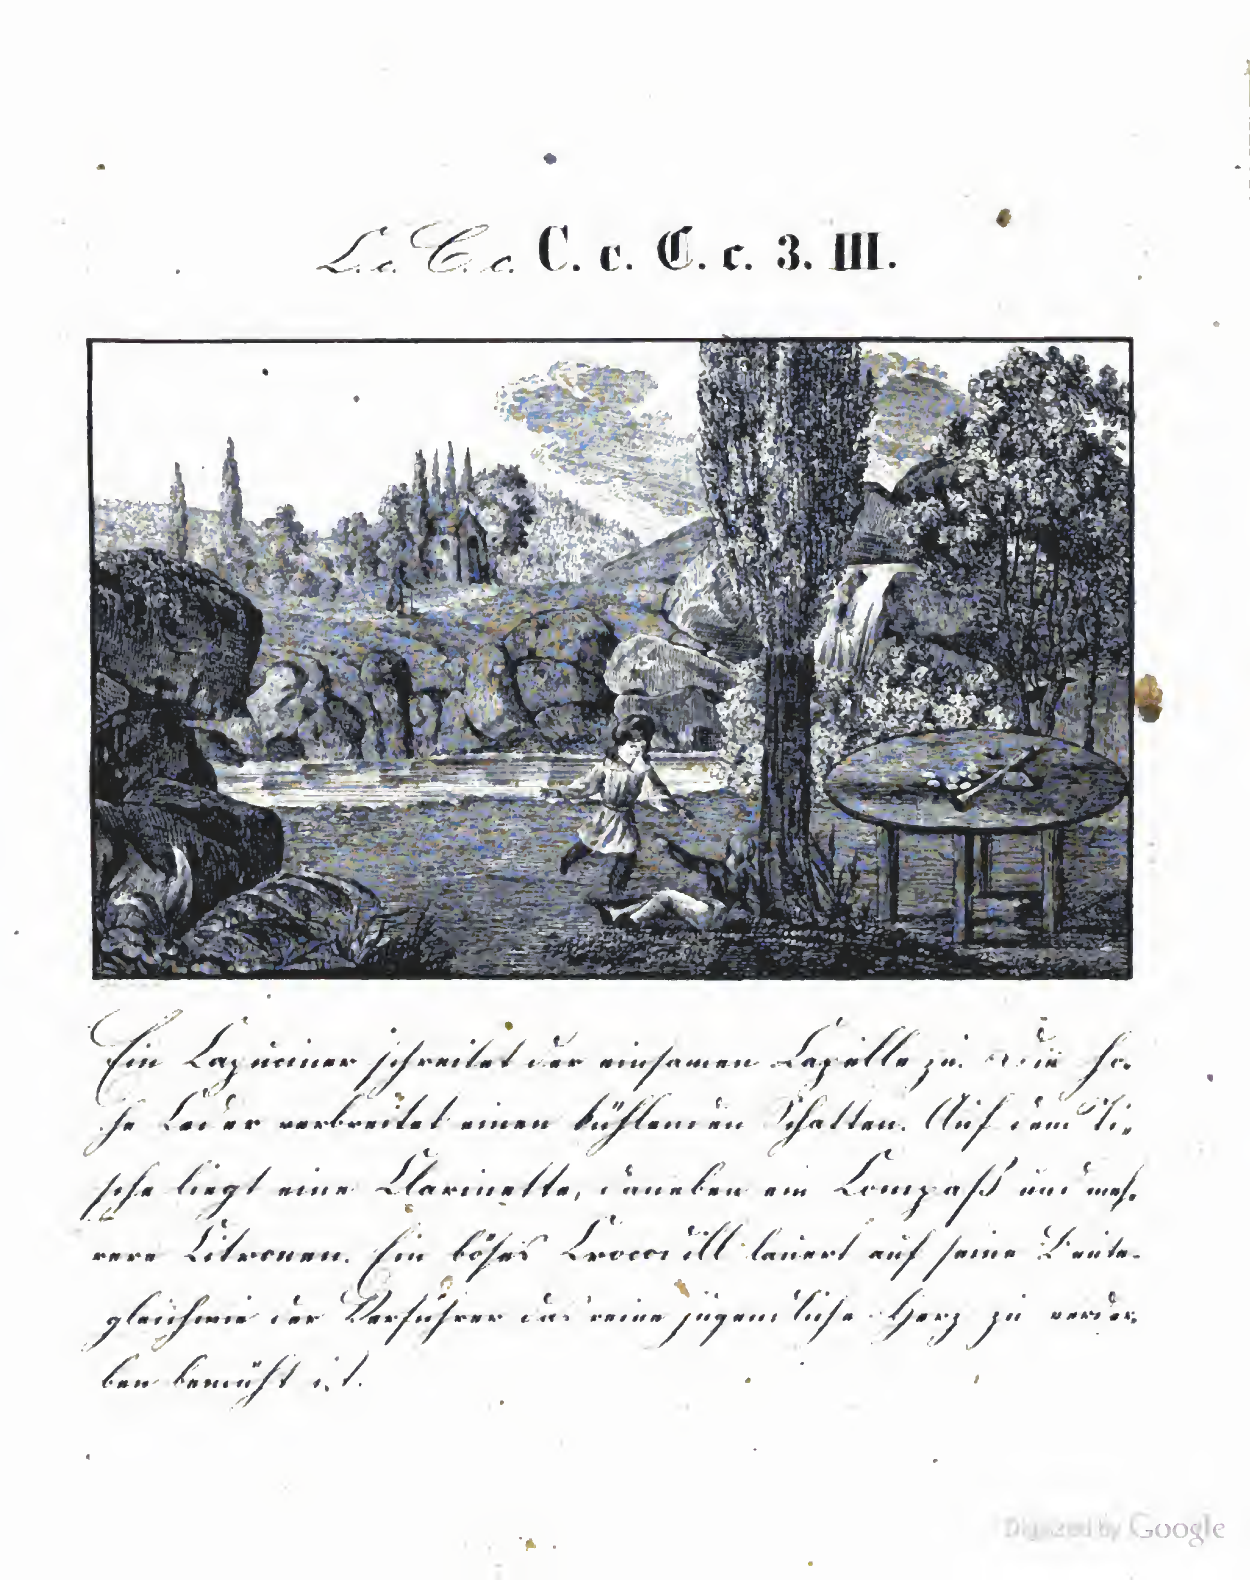 C. c. C. c. C. c. C. c. 3. III.
Ein Capuciner schreitet der einsamen Capelle zu. Die ho-
he Ceder verbreitet einen kühlenden Schatten. Auf dem Ti-
sche liegt eine Clarinette, daneben ein Compaß und meh-
rere Citronen. Ein böses Crocodill lauert auf seine Beute-
gleichwie der Verführer das reine jugendliche Herz zu verder-
ben bemüht ist.
Digitized by Google